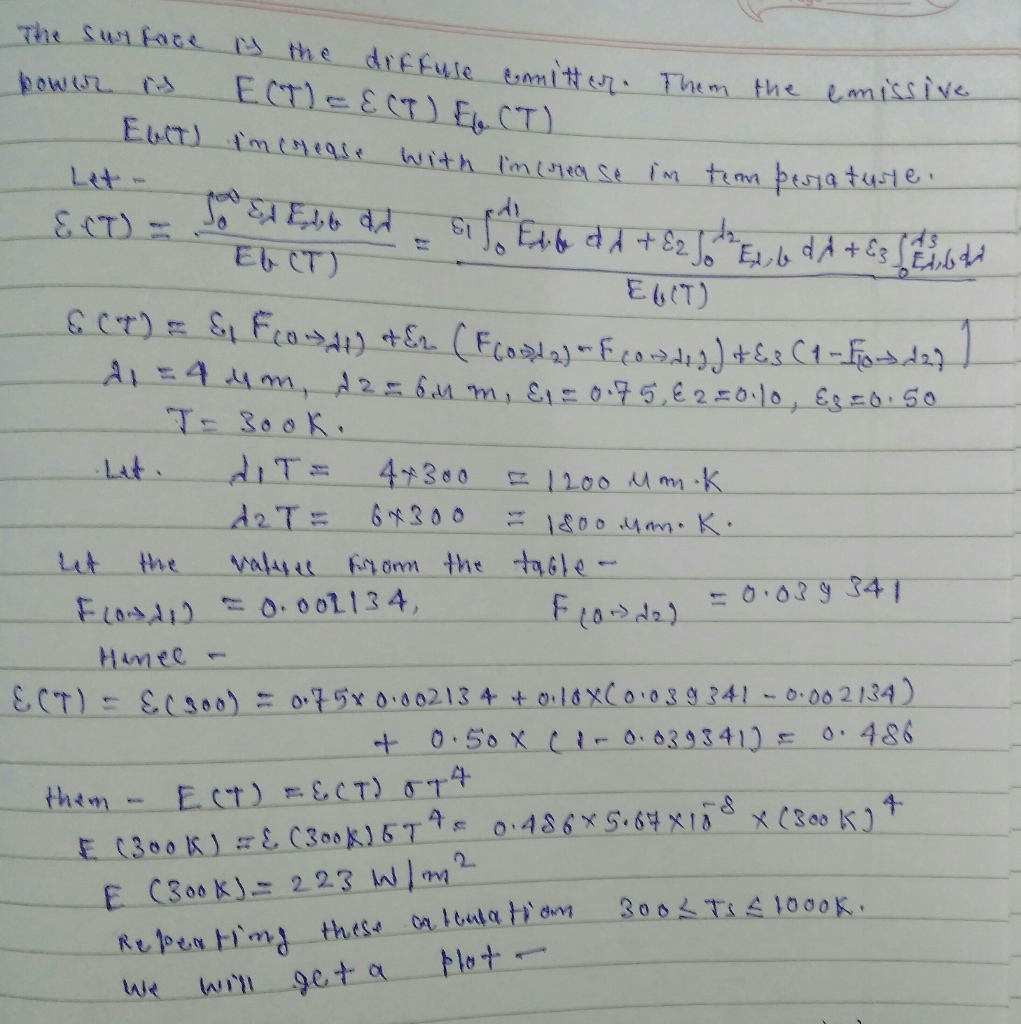 The surface is the diffuse emitter. Then the emissive
power is E(T) = ε(T) Eb(T)
Eb(T) increase with increase in temperature.
Let -
ε(T) = ∫₀^∞ ελ Eλb dλ / Eb(T) = ε1 ∫₀^λ1 Eλb dλ + ε2 ∫₀^λ2 Eλ,b dλ + ε3 ∫₀^λ3 Eλ,b dλ / Eb(T)
ε(T) = ε1 F(0→λ1) + ε2 (F(0→λ2) - F(0→λ1)) + ε3 (1 - F(0→λ2)]
λ1 = 4 μm, λ2 = 6 μm, ε1 = 0.75, ε2 = 0.10, ε3 = 0.50
T = 300K.
Let. λ1T = 4×300 = 1200 μm·K
λ2T = 6×300 = 1800 μm·K.
Let the values from the table -
F(0→λ1) = 0.002134, F(0→λ2) = 0.039341
Hence -
ε(T) = ε(300) = 0.75×0.002134 + 0.10×(0.039341 - 0.002134)
+ 0.50 × (1 - 0.039341) = 0.486
then - E(T) = ε(T) σT⁴
E (300K) = ε (300K) σT⁴ = 0.486×5.67×10⁻⁸ × (300K)⁴
E (300K) = 223 W/m²
Repeating these calculation 300 ≤ Ts ≤ 1000K.
We will get a plot -